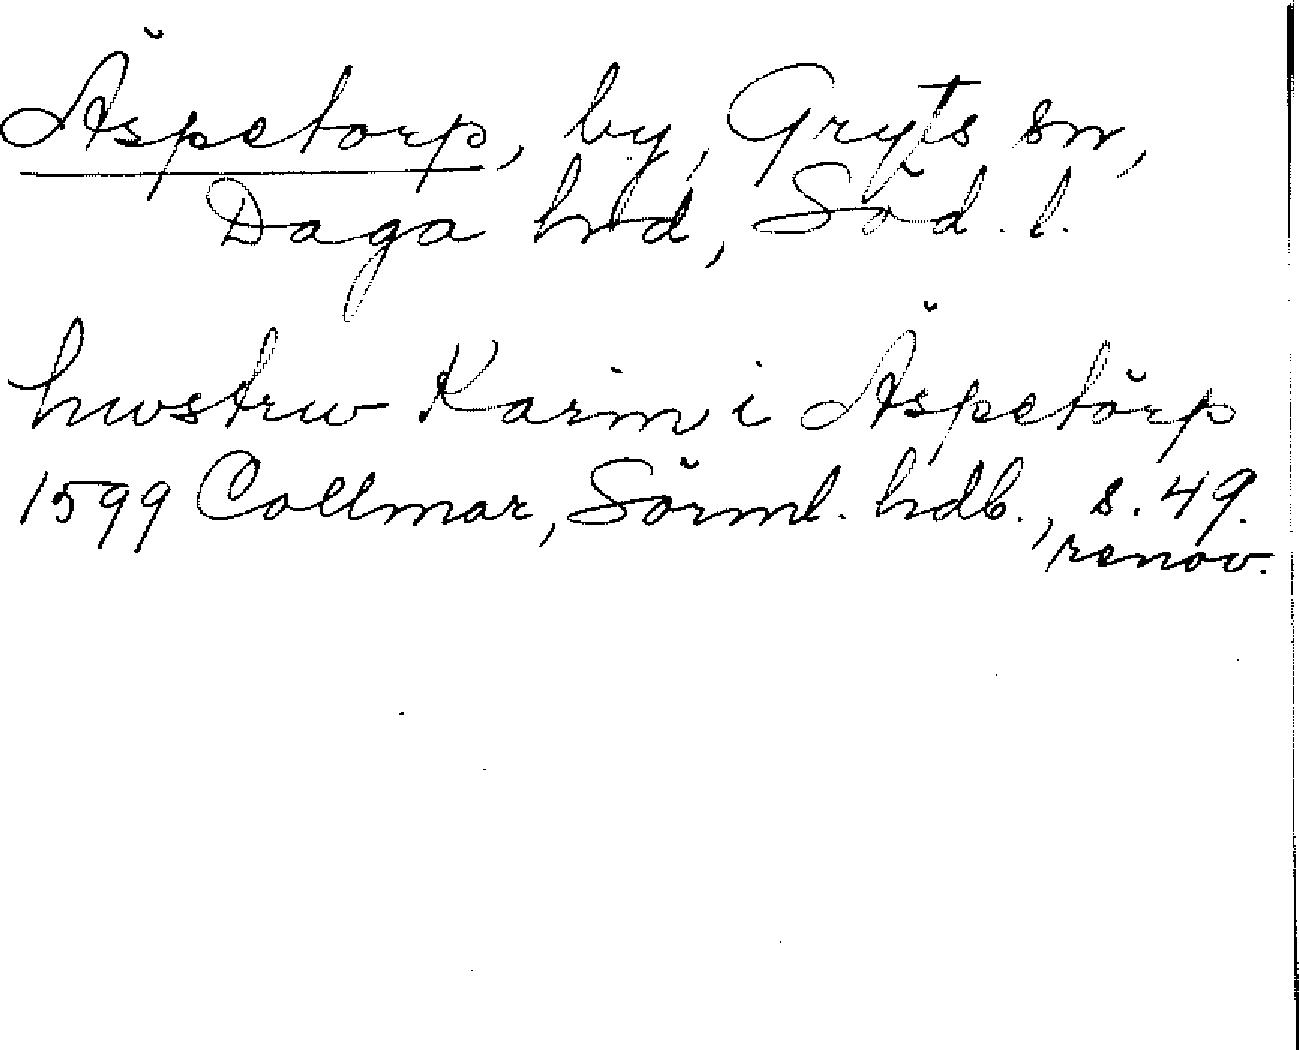 Äspetorp, by, Gryts sn,
Daga hrd, Söd. l.
hwstrw Karin i Äspetörp
1599 Collmar, Sörml. hdb., s. 49.
renov.